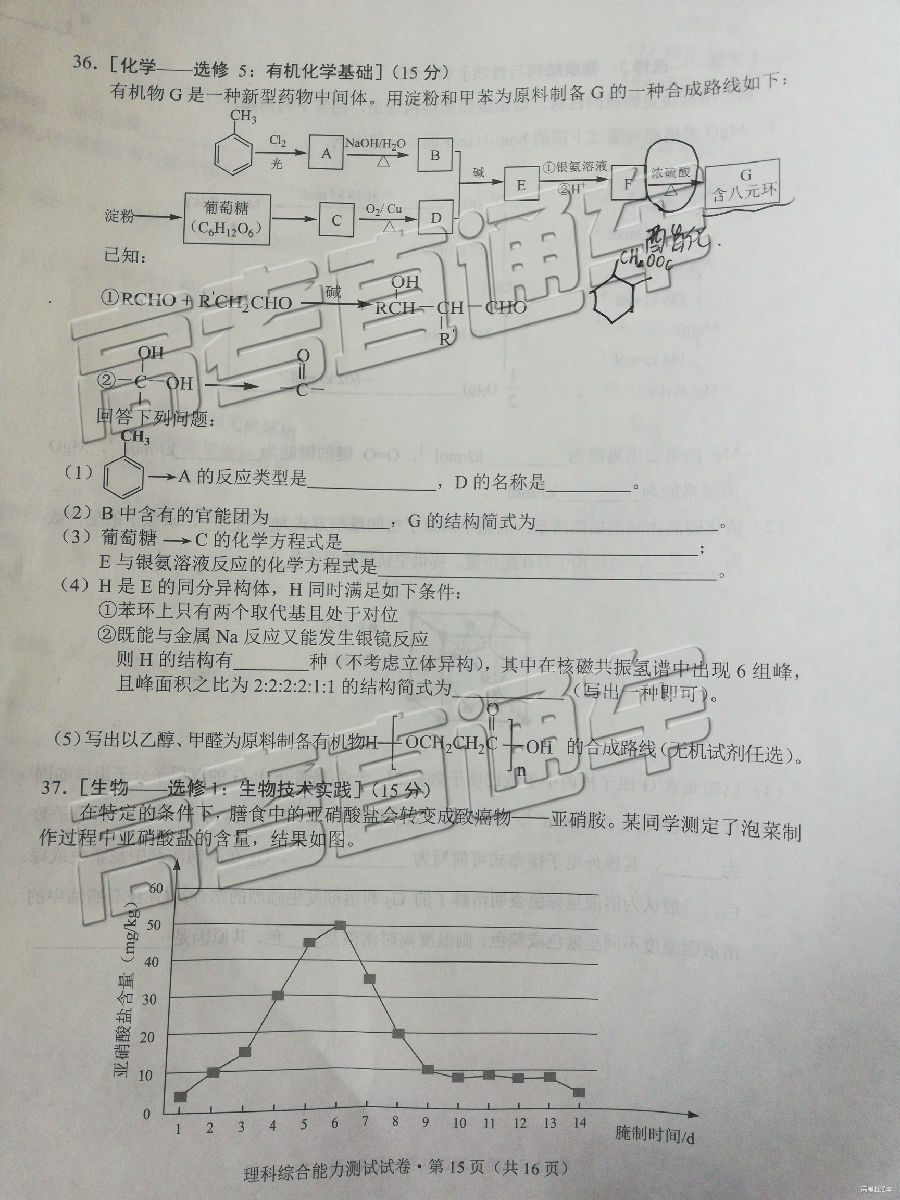 36. [化学——选修 5：有机化学基础]（15 分）
有机物 G 是一种新型药物中间体。用淀粉和甲苯为原料制备 G 的一种合成路线如下：
CH3
Cl2
光
A
NaOH/H2O
△
B
碱
E
①银氨溶液
②H+
F
浓硫酸
△
G
含八元环
淀粉
葡萄糖
(C6H12O6)
C
O2/ Cu
△
D
酯化.
已知：
CH2OOC
①RCHO + R'CH2CHO
碱
OH
RCH—CH—CHO
R'
OH
②—C—OH
O
—C—
回答下列问题：
CH3
（1） →A 的反应类型是，D 的名称是。
（2）B 中含有的官能团为，G 的结构简式为。
（3）葡萄糖 →C 的化学方程式是；
E 与银氨溶液反应的化学方程式是。
（4）H 是 E 的同分异构体，H 同时满足如下条件：
①苯环上只有两个取代基且处于对位
②既能与金属 Na 反应又能发生银镜反应
则 H 的结构有种（不考虑立体异构），其中在核磁共振氢谱中出现 6 组峰，
且峰面积之比为 2:2:2:2:1:1 的结构简式为（写出一种即可）。
O
（5）写出以乙醇、甲醛为原料制备有机物H—[OCH2CH2C]—OH 的合成路线（无机试剂任选）。
n
37. [生物——选修 1：生物技术实践]（15 分）
在特定的条件下，膳食中的亚硝酸盐会转变成致癌物——亚硝胺。某同学测定了泡菜制
作过程中亚硝酸盐的含量，结果如图。
亚硝酸盐含量（mg/kg）
60
50
40
30
20
10
0
1 2 3 4 5 6 7 8 9 10 11 12 13 14
腌制时间/d
理科综合能力测试试卷·第 15 页（共 16 页）
高考直通车
高考直通车